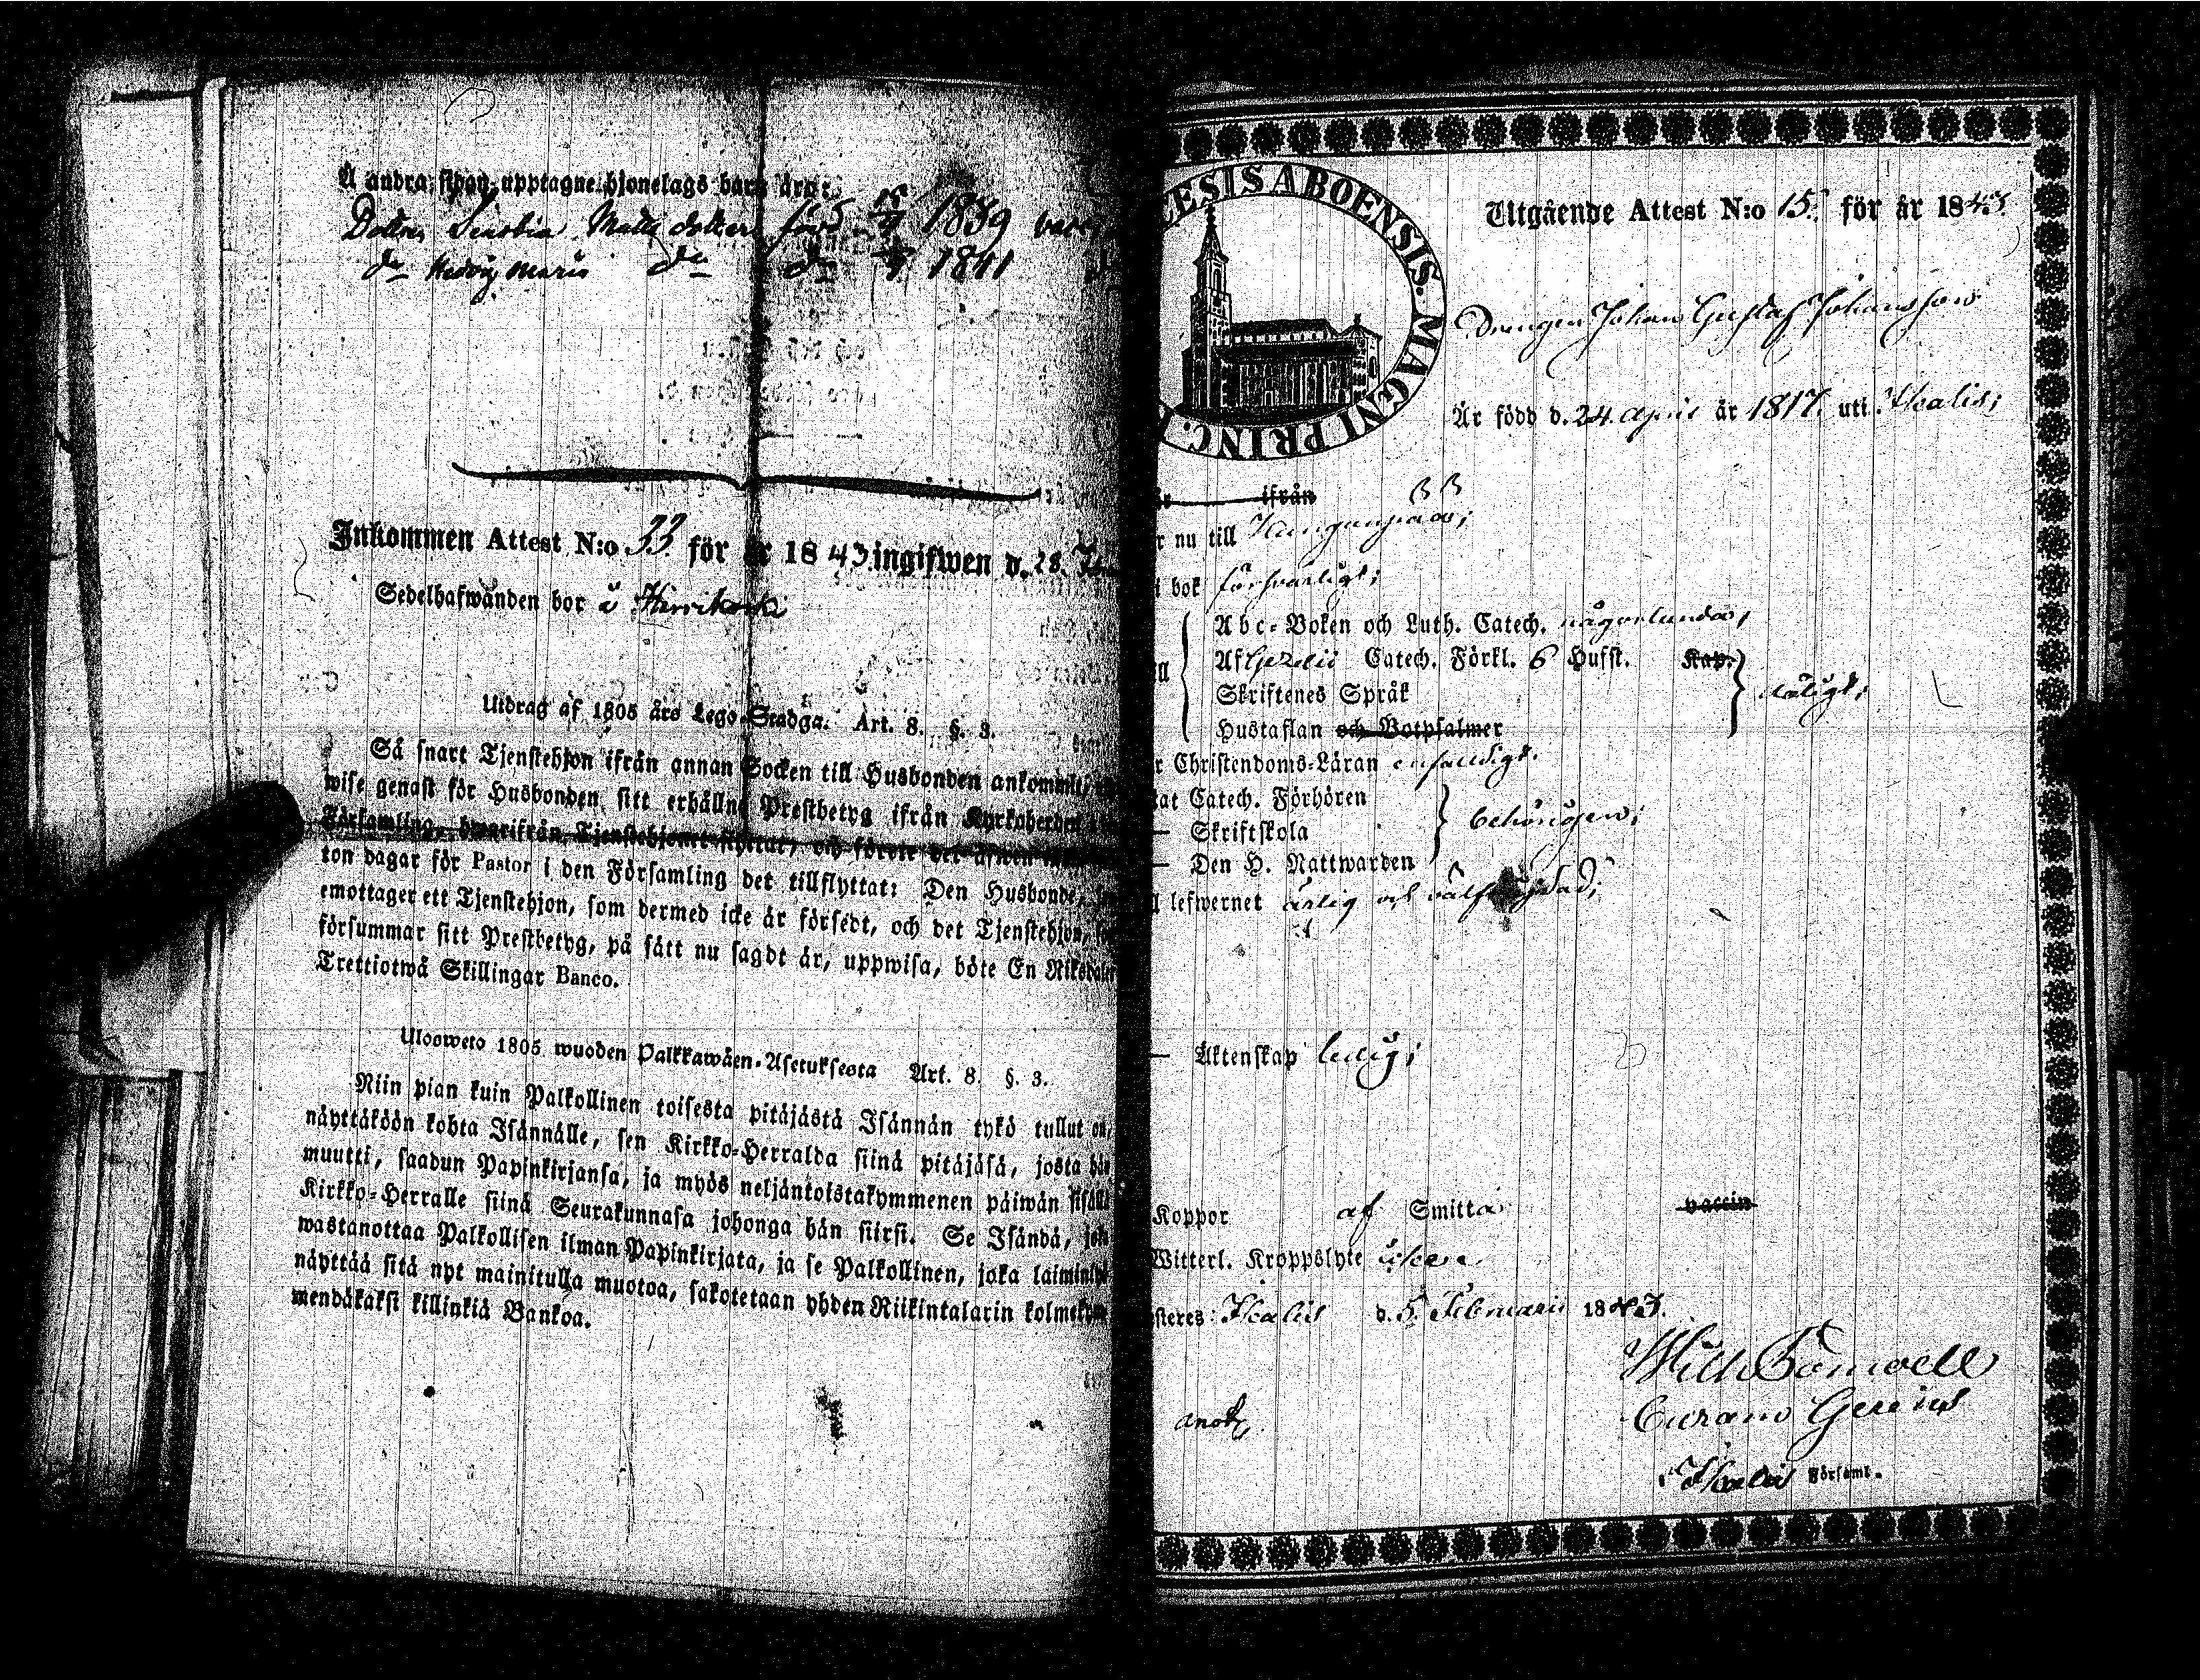 Å andra sidan upptagne hjonelags barn äro:
Dottren Matts dotter född 15/9 1839
do Hedvig Maria do do 1841
Inkommen Attest N:o 33 för år 1843 ingifwen d. 28.
Sedelhafwanden bor å
Utdrag af 1805 års Lego-Stadga. Art. 8. §. 3.
Så snart Tjenstehjon ifrån annan Socken till Husbonden ankommit,
wise genast för Husbonden sitt erhållne Prestbetyg ifrån Kyrkoherden
Församling, hwarifrån Tjenstehjonet flyttat, och förete det äfwen
ton dagar för Pastor i den Församling det tillflyttat: Den Husbonde,
emottager ett Tjenstehjon, som dermed icke är försedt, och det Tjenstehjon,
försummar sitt Prestbetyg, på sätt nu sagdt är, uppwisa, böte En Riksdaler
Trettiotwå Skillingar Banco.
Ulosweto 1805 wuoden Palkkawäen-Asetuksesta Art. 8. §. 3.
Niin pian kuin Palkollinen toisesta pitäjästä Isännän tykö tullut on,
näyttäköön kohta Isännälle, sen Kirkko-Herralda siinä pitäjäsä, josta hän
muutti, saadun Papinkirjansa, ja myös neljäntoistakymmenen päiwän sisällä
Kirkko-Herralle siinä Seurakunnasa johonga hän siirsi. Se Isändä, joka
wastanottaa Palkollisen ilman Papinkirjata, ja se Palkollinen, joka laiminlyö
näyttää sitä nyt mainitulla muotoa, sakotetaan yhden Riikintalarin kolmekym-
mendäkaksi killinkiä Bankoa.
ESIS ABOENSIS. MAGNI PRINC.
Utgående Attest N:o 15. för år 1843.
Drengen Johan Gustaf Johansson
Är född d. 24 April år 1817. uti Ikalis;
ifrån
r nu till Kanganpää;
i bok försvarligt;
Abc-Boken och Luth. Catech. någorlunda;
Af Gezelii Catech. Förkl. 6 Hufst. Kap.
Skriftenes Språk
Hustaflan och Botpsalmer
r Christendoms-Läran enfaldigt.
at Catech. Förhören
— Skriftskola
behörigen;
— Den H. Nattwarden
lefwernet ärlig och välfrägdad;
— Äktenskap ledig;
Koppor af Smitta vaccin
Witterl. Kroppslyte
steres Ikalis d. 5. Februarii 1843.
Curam Gerens
Ikalis Församl.